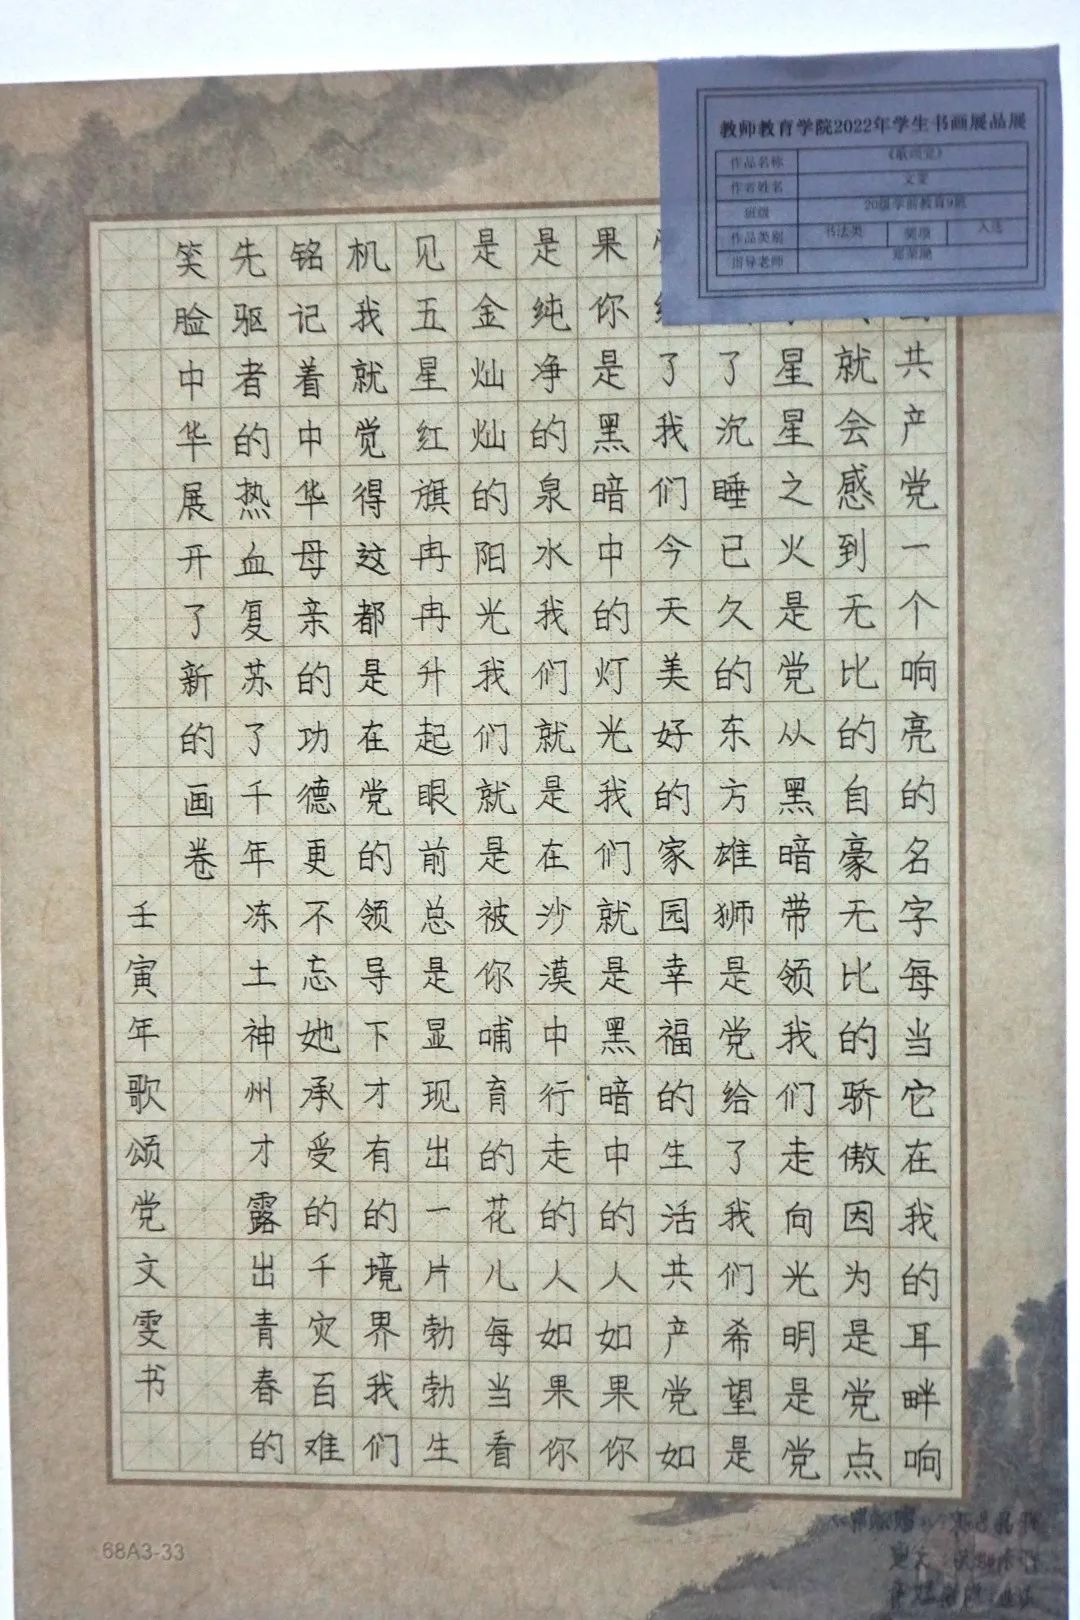 教师教育学院2022年学生书画展品展
作品名称 《歌颂党》
作者姓名 文雯
班级 20级学前教育9班
作品类别 书法类 奖项 入选
指导老师
共产党一个响亮的名字每当它在我的耳畔响
就会感到无比的自豪无比的骄傲因为是党点
星星之火是党从黑暗带领我们走向光明是党
了沉睡已久的东方雄狮是党给了我们希望是
了我们今天美好的家园幸福的生活共产党如
果你是黑暗中的灯光我们就是黑暗中的人如果你
是纯净的泉水我们就是在沙漠中行走的人如果你
是金灿灿的阳光我们就是被你哺育的花儿每当看
见五星红旗冉冉升起眼前总是显现出一片勃勃生
机我就觉得这都是在党的领导下才有的境界我们
铭记着中华母亲的功德更不忘她承受的千灾百难
先驱者的热血复苏了千年冻土神州才露出青春的
笑脸中华展开了新的画卷
壬寅年歌颂党文雯书
68A3-33